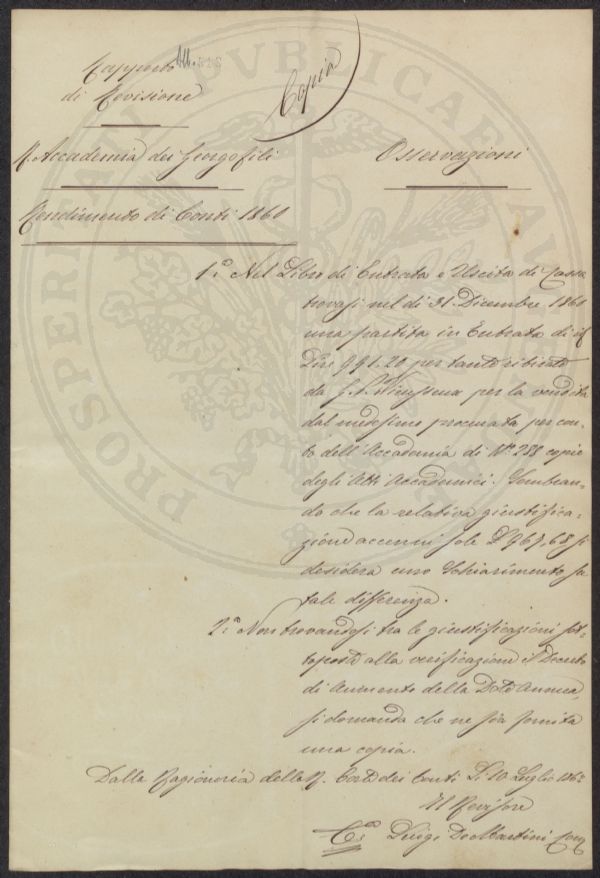 Rapporto
di Revisione
Copia
R. Accademia dei Georgofili
Osservazioni
Rendimento di Conti 1860
1.° Nel Libro di Entrata e Uscita di Cassa
trovasi nel di 31. Dicembre 1860
una partita in Entrata di it
Lire 991.20 per tante
da G. P. Vieusseux per la vendita
dal medesimo procurata per con-
to dell'Accademia di N.° 288 copie
degli Atti Accademici. Sembran-
do che la relativa giustifica-
zione accenni sole L 967,68 si
desidera uno Schiarimento su
tale differenza.
2.° Non trovandosi tra le giustificazioni sot-
toposte alla verificazione il Decreto
di Aumento della Dote Annua,
si domanda che ne sia fornita
una copia.
Dalla Ragioneria della R. Corte dei Conti Li 10 Luglio 186
Il Revisore
Luigi DeMartini
PROSPERITATI PUBLICAE AUGENDAE